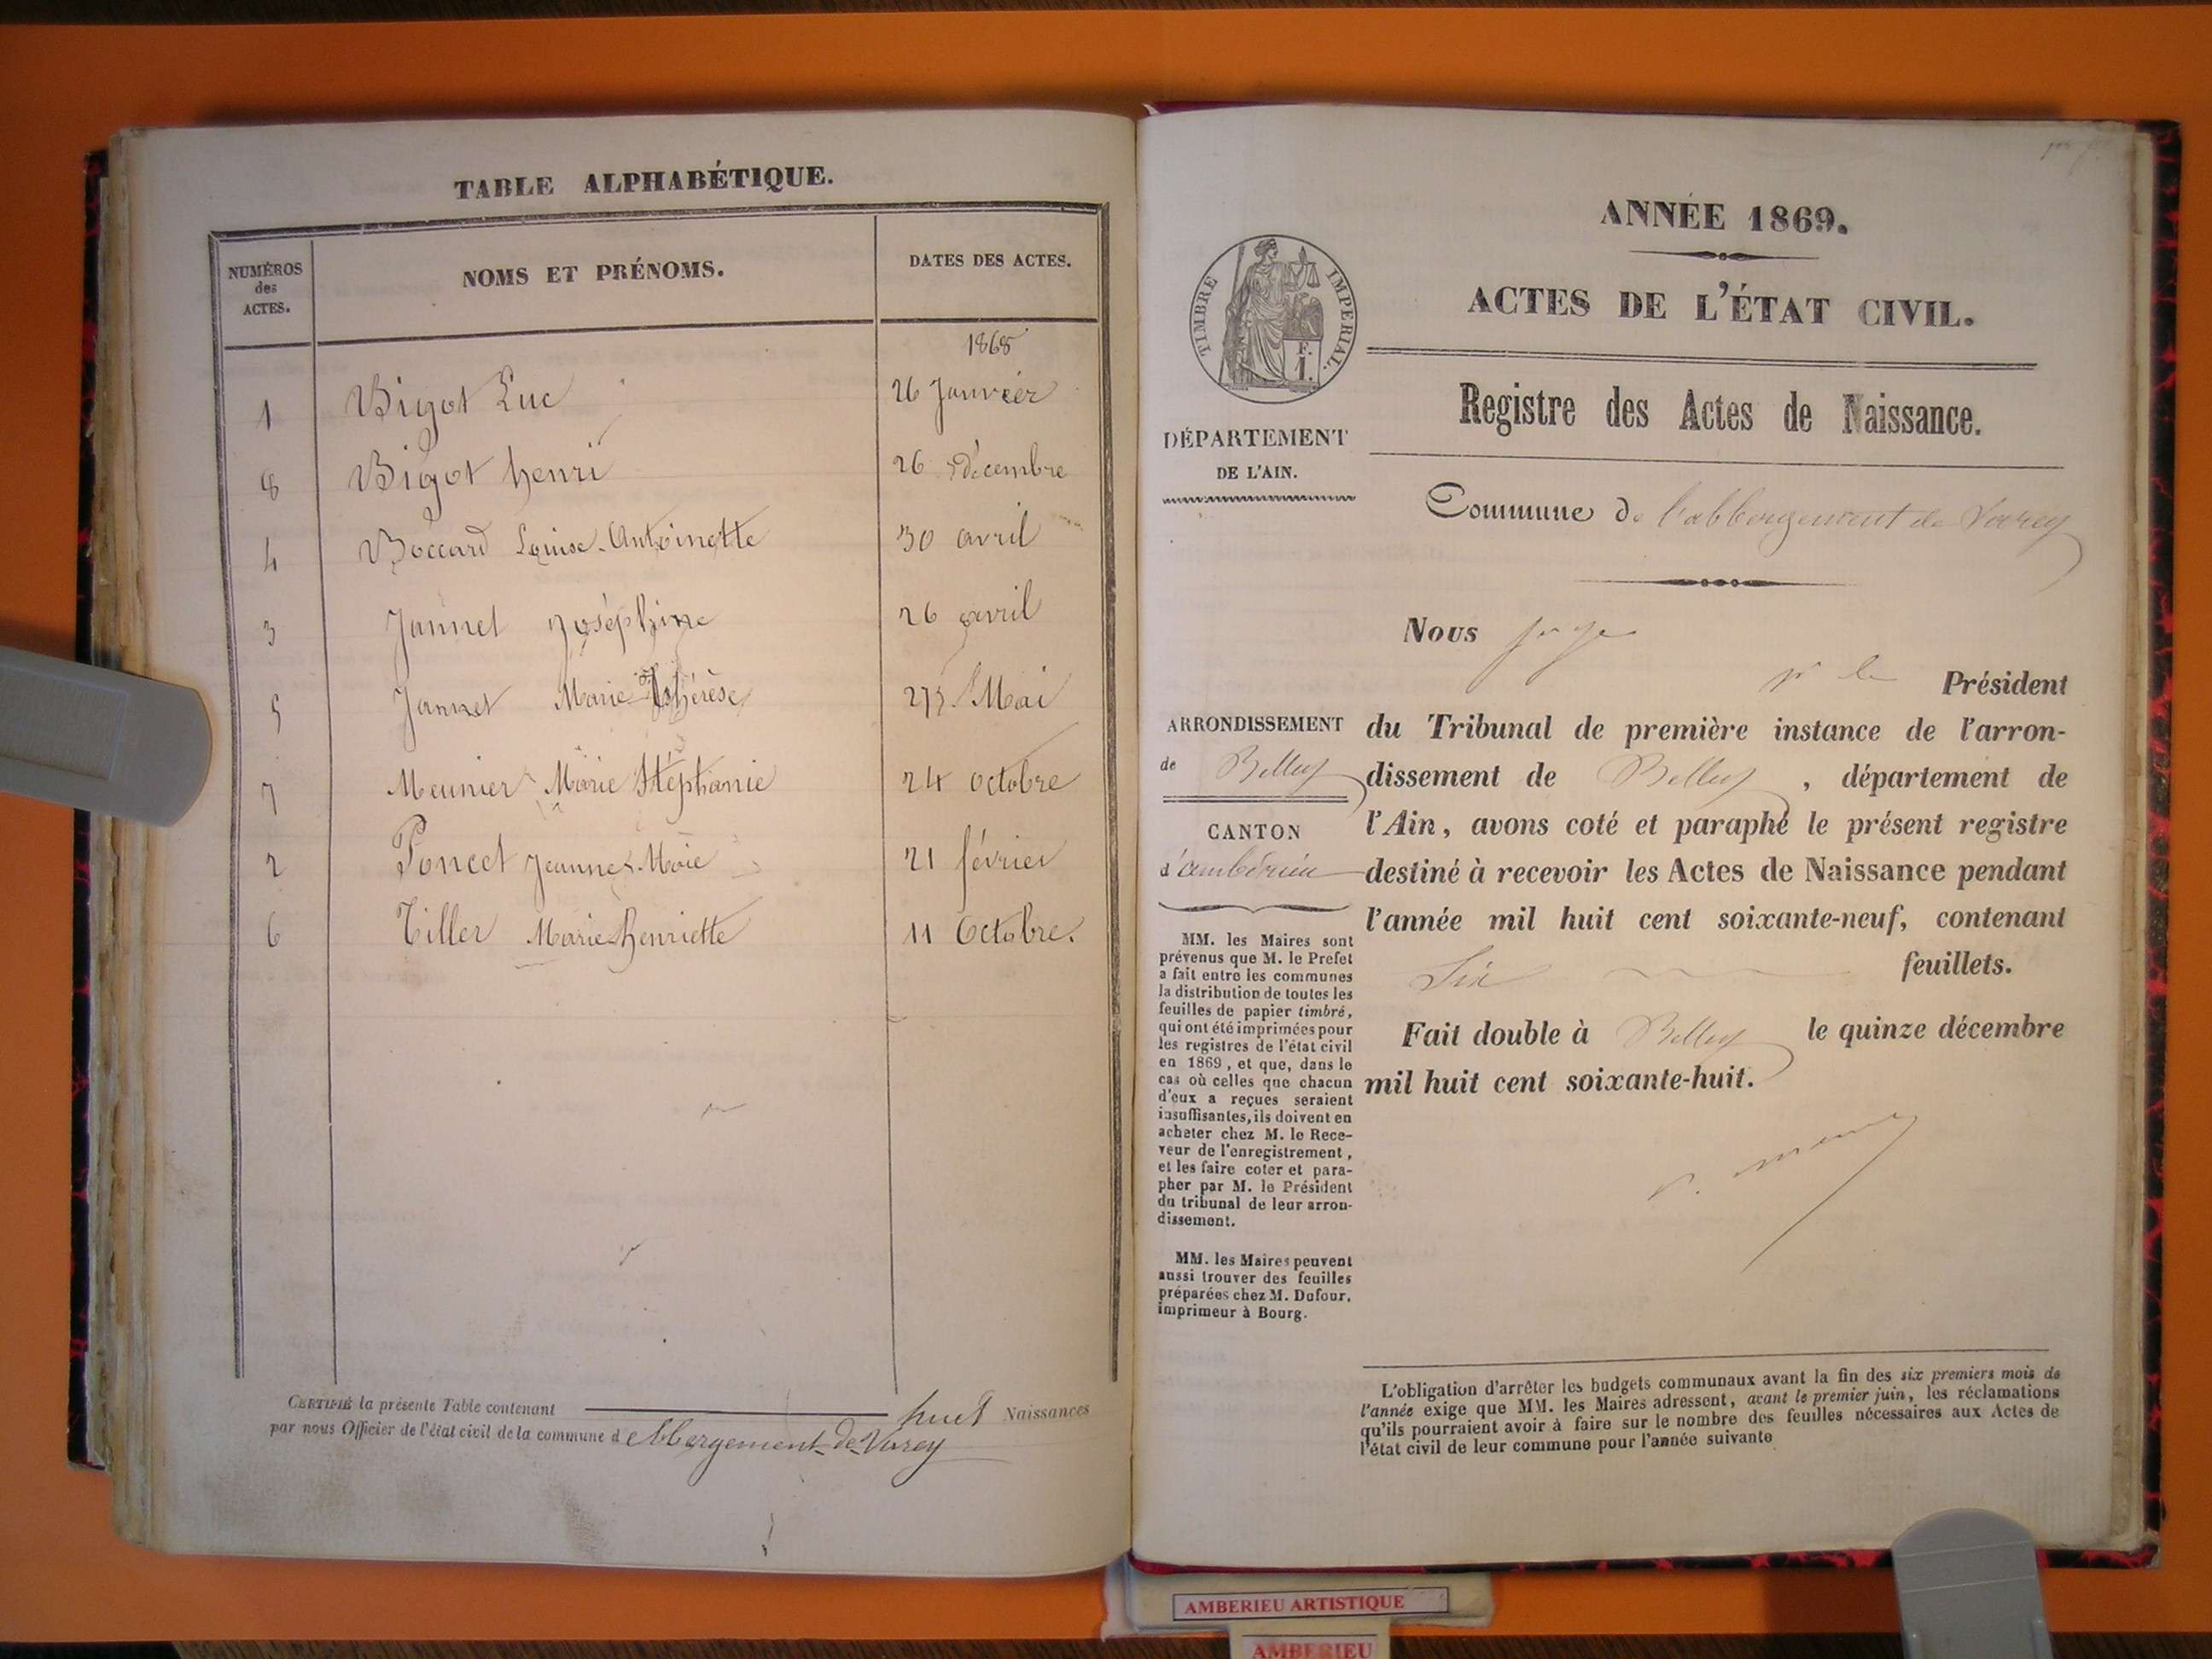 TABLE ALPHABÉTIQUE.
NUMÉROS des ACTES.
NOMS ET PRÉNOMS.
DATES DES ACTES.
1868
1 Bigot Luc 26 Janvier
8 Bigot henri 26 décembre
4 Boccard Louise-Antoinette 30 avril
3 Jannet Joséphine 26 avril
5 Jannet Marie Thérèse Mai
7 Meunier Marie Stéphanie 24 octobre
2 Poncet Jeanne-Marie 21 février
6 Tiller Marie-henriette 11 Octobre.
CERTIFIÉ la présente Table contenant huit Naissances
par nous Officier de l'état civil de la commune d'Abbergement-de-Varey
ANNÉE 1869.
ACTES DE L'ÉTAT CIVIL.
TIMBRE IMPERIAL.
F.
1.
Registre des Actes de Naissance.
DÉPARTEMENT
DE L'AIN.
Commune de l'abbergement de Varey
Nous juge
pr le Président
ARRONDISSEMENT
de Belley
CANTON
d'ambérieu
du Tribunal de première instance de l'arron-
dissement de Belley, département de
l'Ain, avons coté et paraphé le présent registre
destiné à recevoir les Actes de Naissance pendant
l'année mil huit cent soixante-neuf, contenant
Six feuillets.
Fait double à Belley le quinze décembre
mil huit cent soixante-huit.
MM. les Maires sont
prévenus que M. le Prefet
a fait entre les communes
la distribution de toutes les
feuilles de papier timbré,
qui ont été imprimées pour
les registres de l'état civil
en 1869, et que, dans le
cas où celles que chacun
d'eux a reçues seraient
insuffisantes, ils doivent en
acheter chez M. le Rece-
veur de l'enregistrement,
et les faire coter et para-
pher par M. le Président
du tribunal de leur arron-
dissement.
MM. les Maires peuvent
aussi trouver des feuilles
préparées chez M. Dufour,
imprimeur à Bourg.
L'obligation d'arrêter les budgets communaux avant la fin des six premiers mois de
l'année exige que MM. les Maires adressent, avant le premier juin, les réclamations
qu'ils pourraient avoir à faire sur le nombre des feuilles nécessaires aux Actes de
l'état civil de leur commune pour l'année suivante
AMBERIEU ARTISTIQUE
AMBERIEU